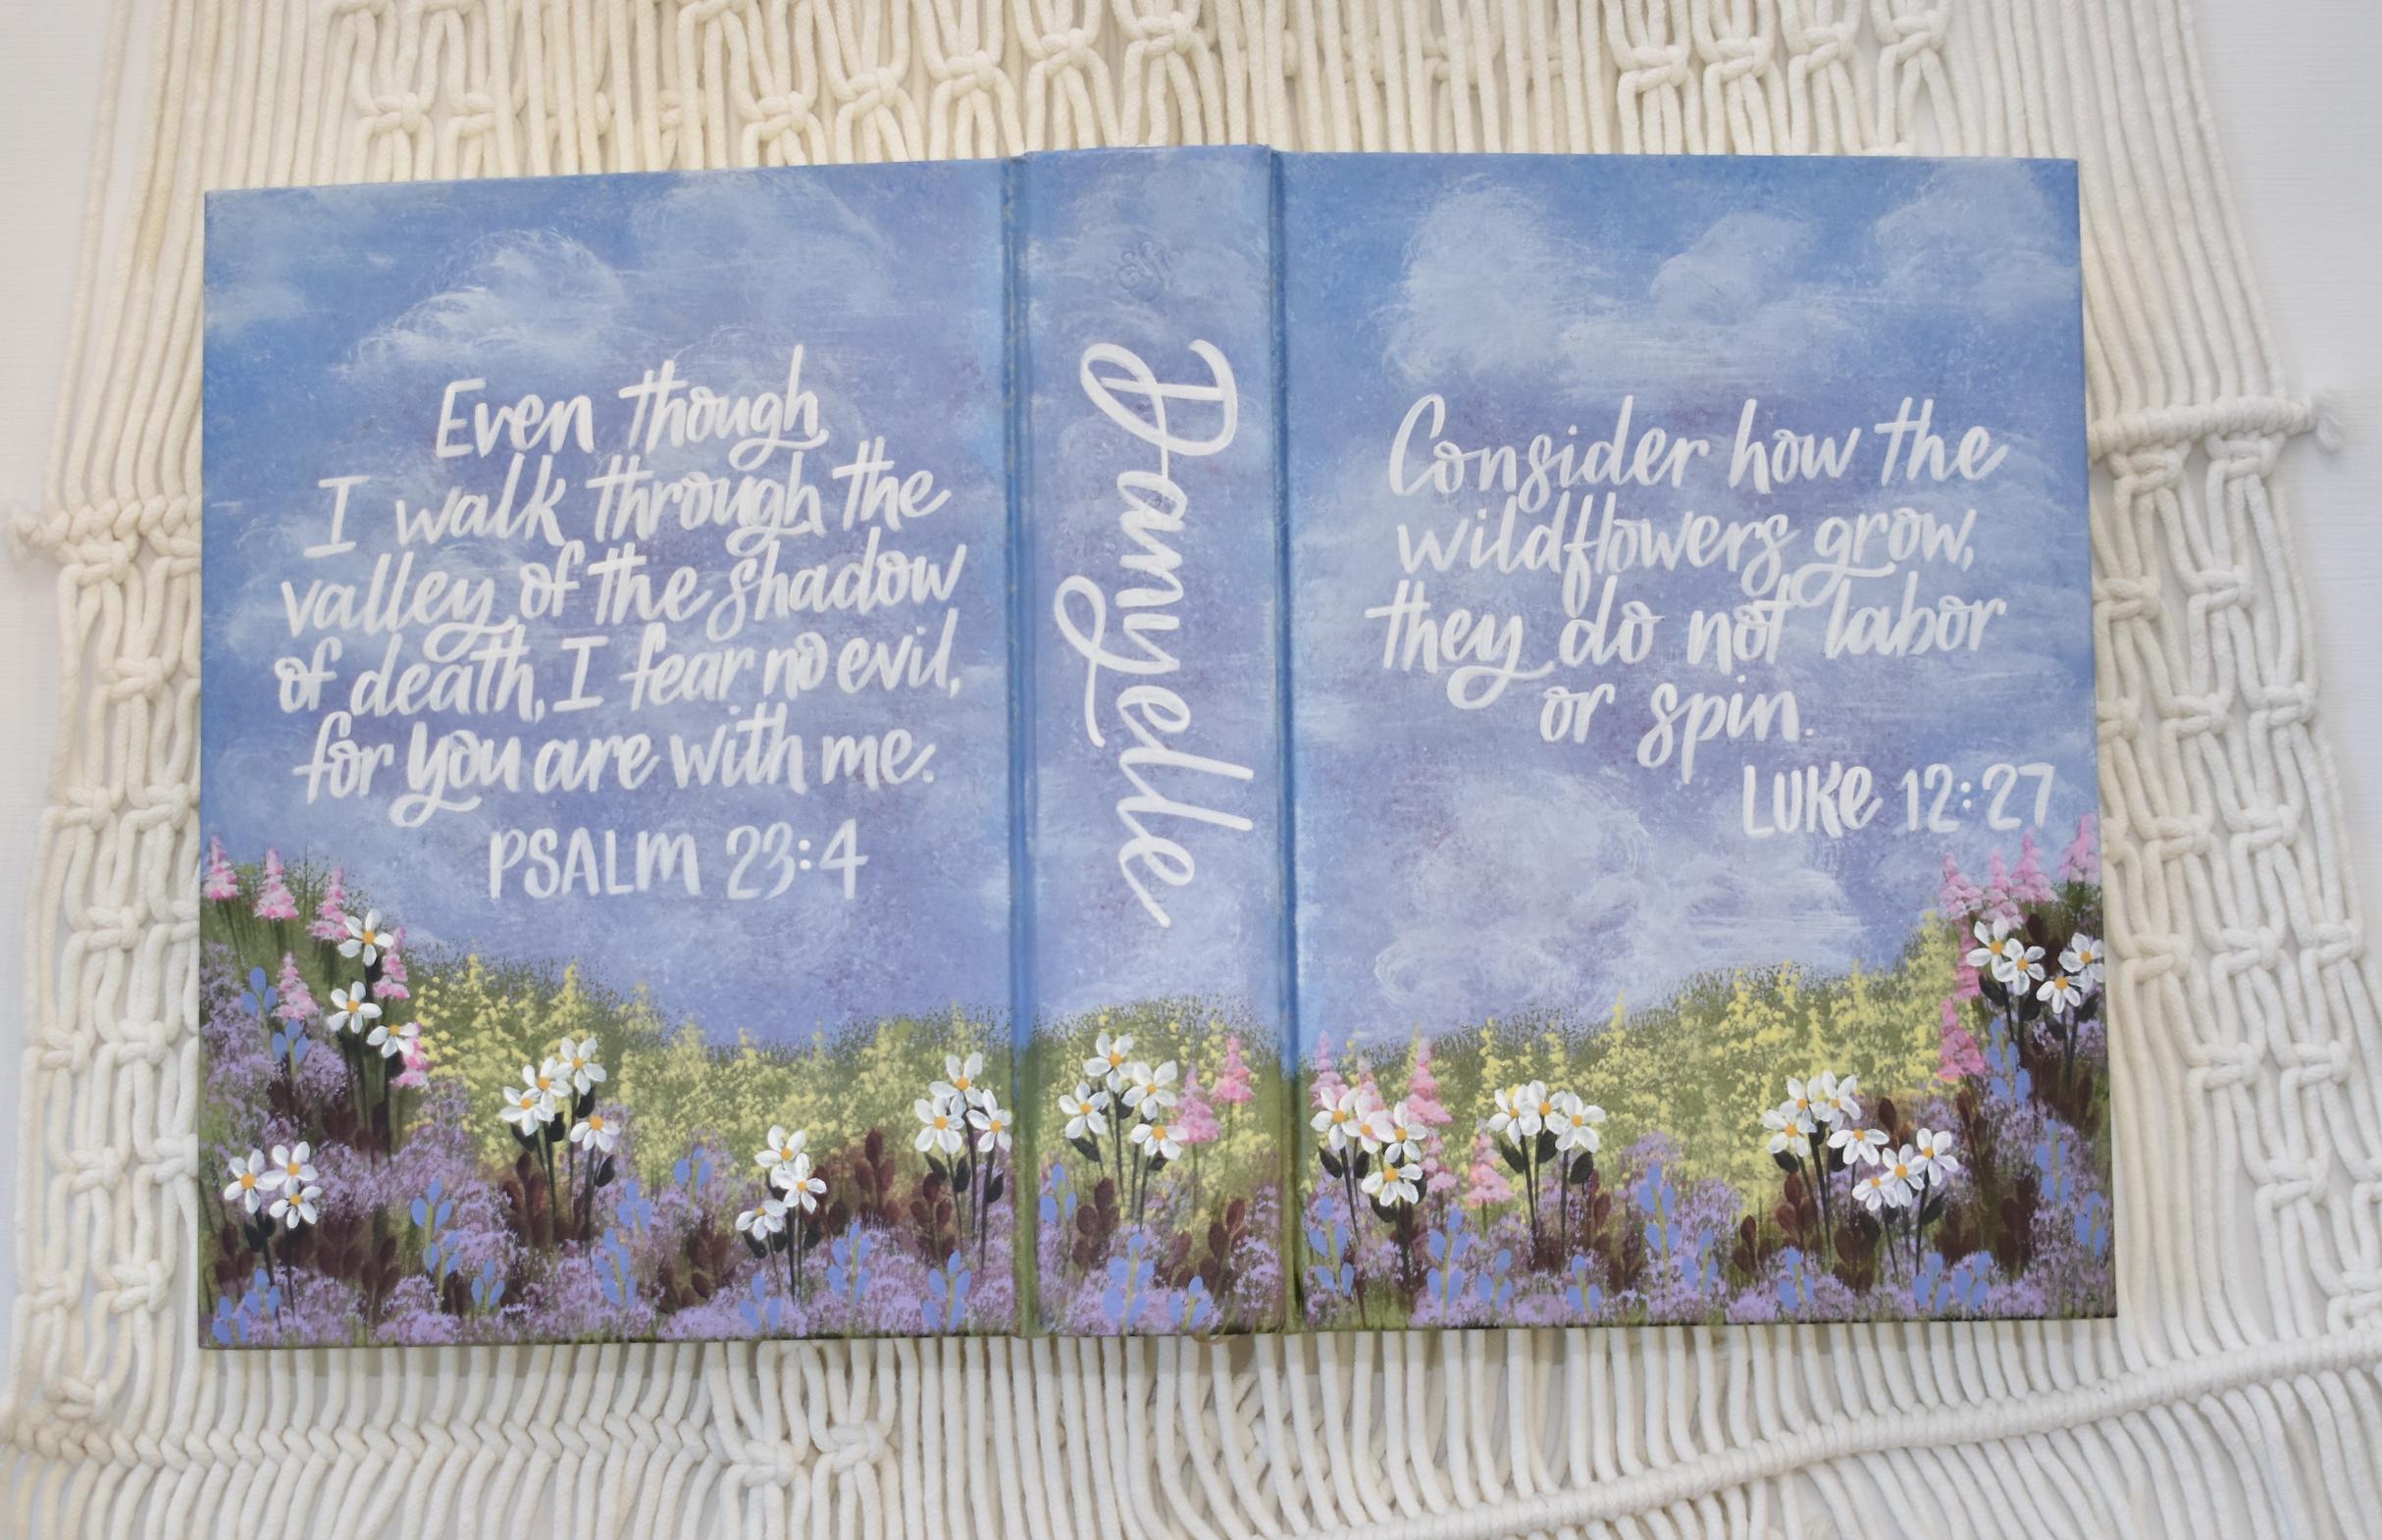 Even though
I walk through the
valley of the shadow
of death, I fear no evil,
for you are with me.
PSALM 23:4
Danyelle
Consider how the
wildflowers grow,
they do not labor
or spin.
LUKE 12:27